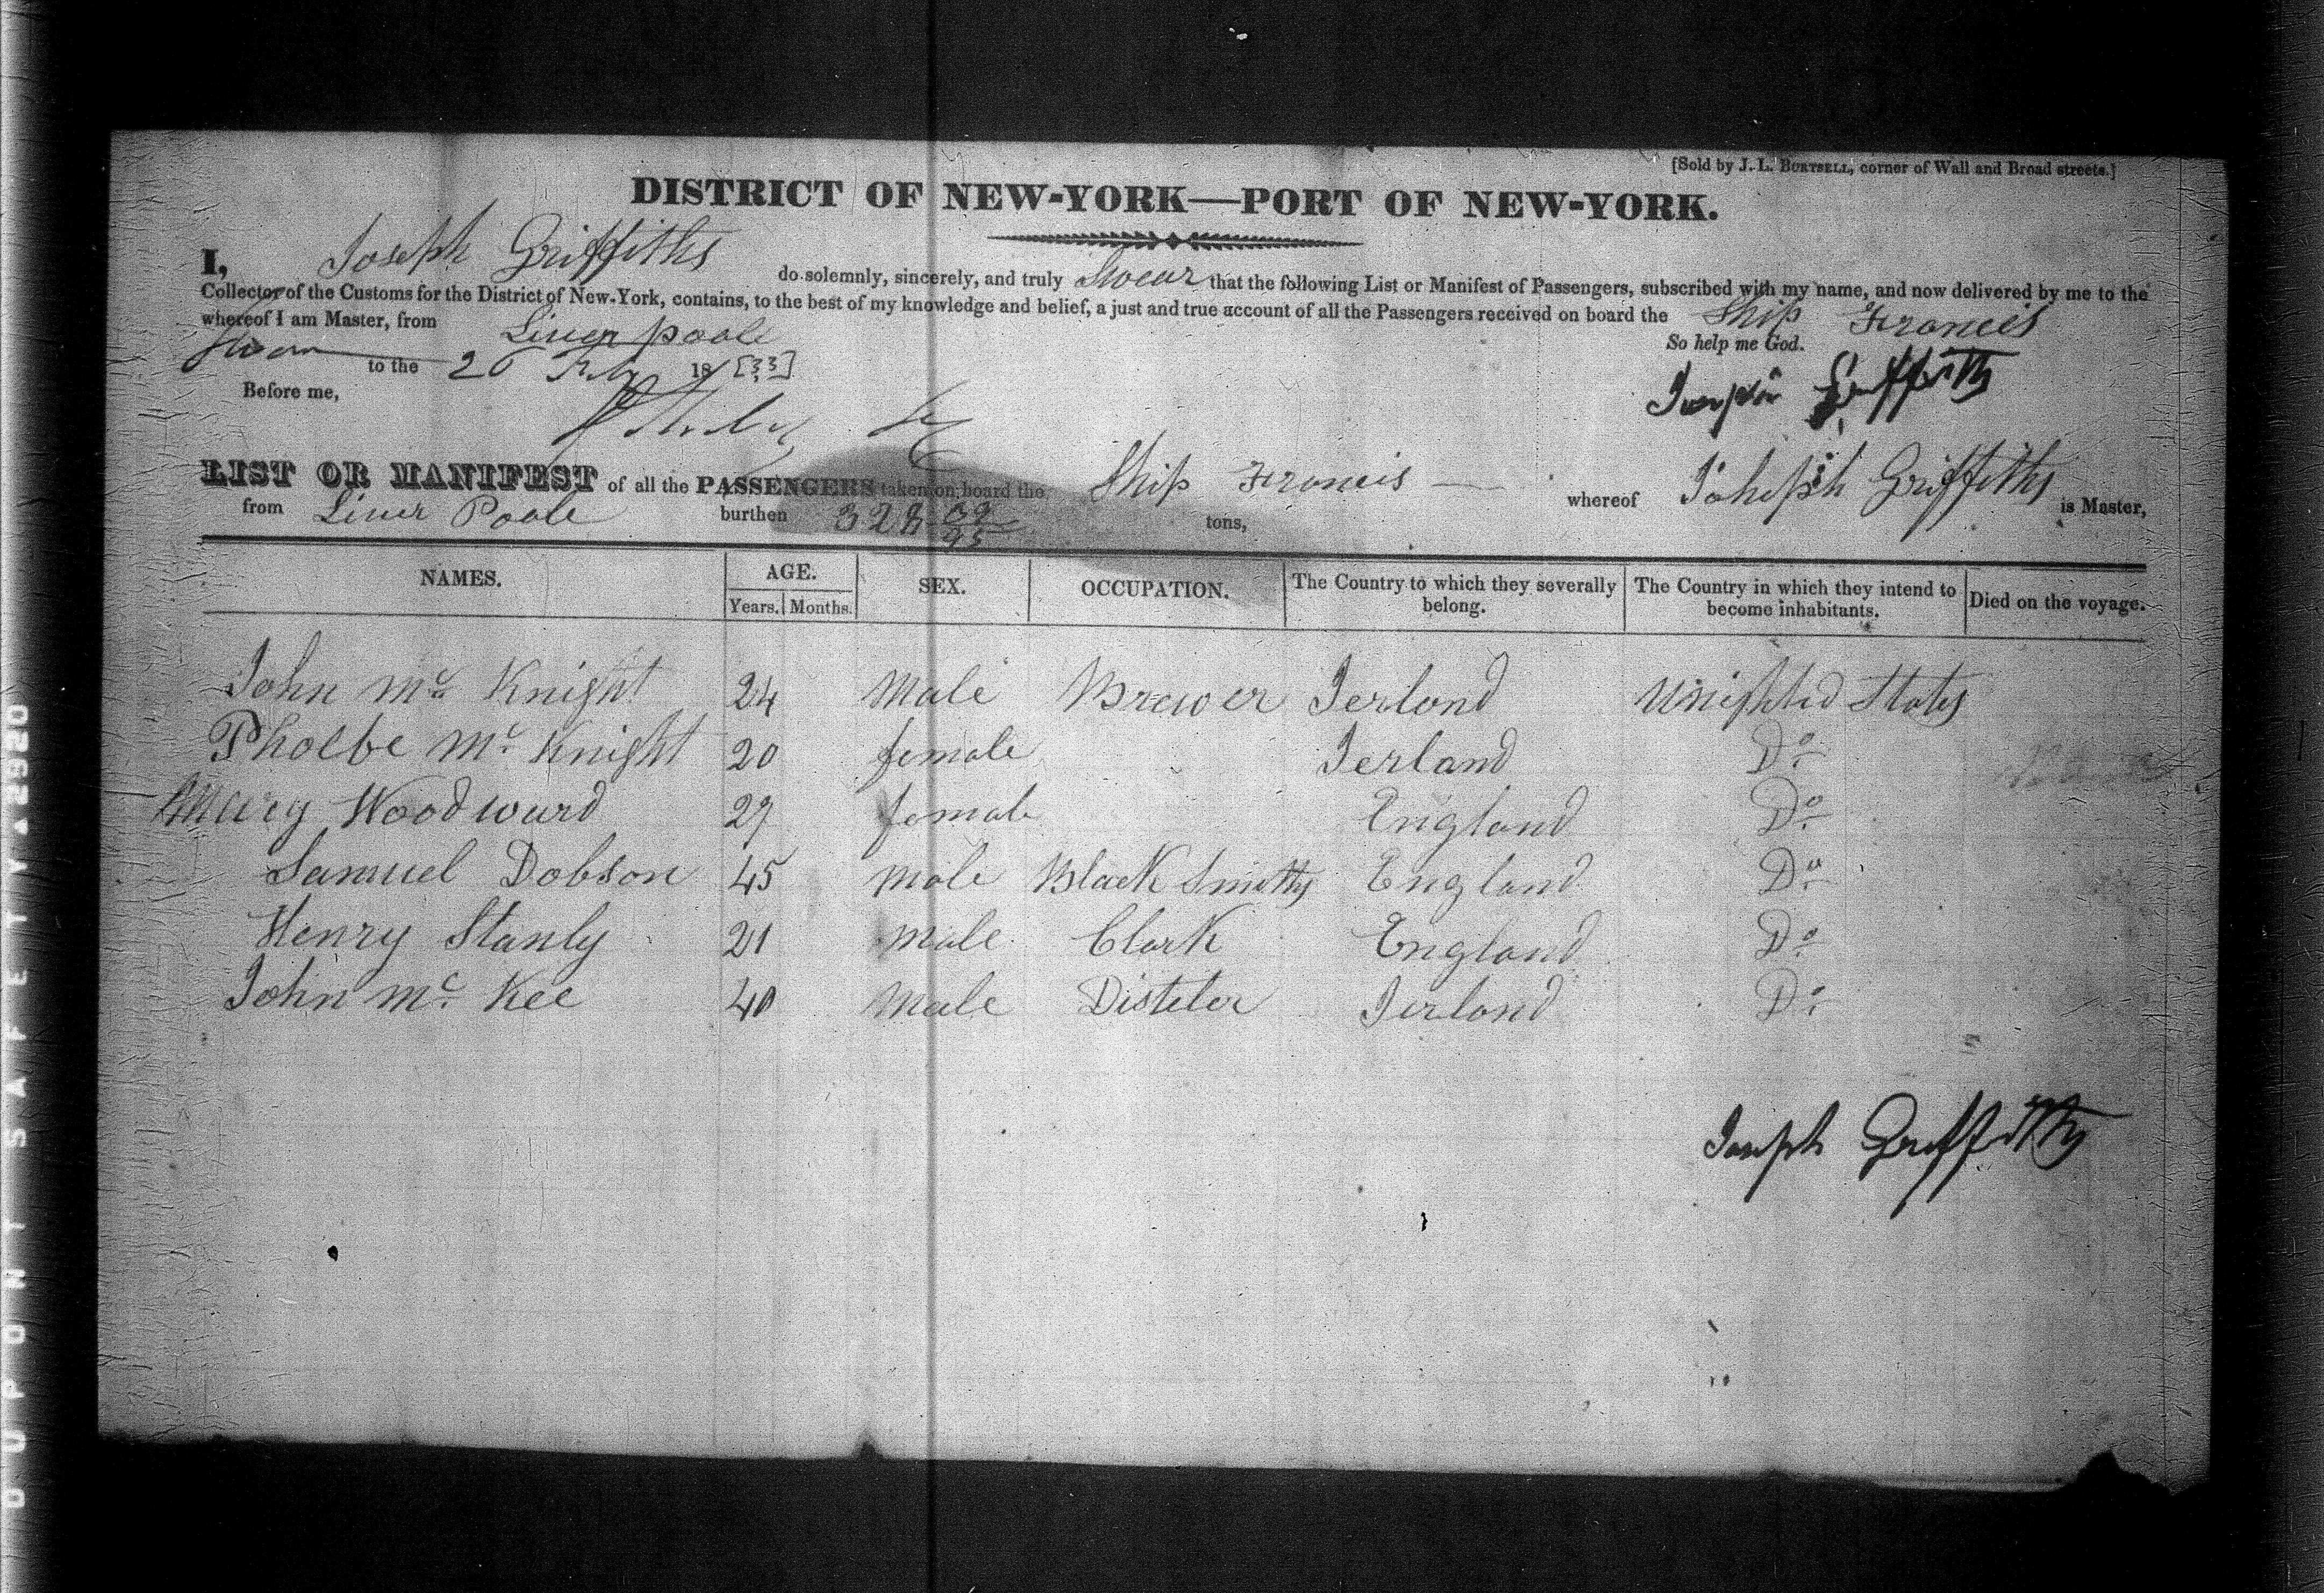 [Sold by J. L. BURTSELL, corner of Wall and Broad streets.]
DISTRICT OF NEW-YORK—PORT OF NEW-YORK.
I, Joseph Griffiths do solemnly, sincerely, and truly Swear that the following List or Manifest of Passengers, subscribed with my name, and now delivered by me to the
Collector of the Customs for the District of New-York, contains, to the best of my knowledge and belief, a just and true account of all the Passengers received on board the Ship Francis
whereof I am Master, from Liverpoole
So help me God.
Sworn to the 26 Feby 18 [33]
Joseph Griffiths
Before me,
LIST OR MANIFEST of all the PASSENGERS taken on board the Ship Francis whereof Joheph Griffiths is Master,
from Liver Poole burthen 328 tons,
NAMES. AGE. SEX. OCCUPATION. The Country to which they severally belong. The Country in which they intend to become inhabitants. Died on the voyage.
Years. Months.
John Mc Knight 24 Male Brewer Ierlond Unighted States
Pholbe Mc Knight 20 female Ierland Do
Mary Woodward 29 female England Do
Samuel Dobson 45 Male Black Smith England Do
Henry Stanly 21 Male Clark England Do
John Mc Kee 40 Male Disteler Ierlond Do
Joseph Griffiths
DUPONT SAFETY